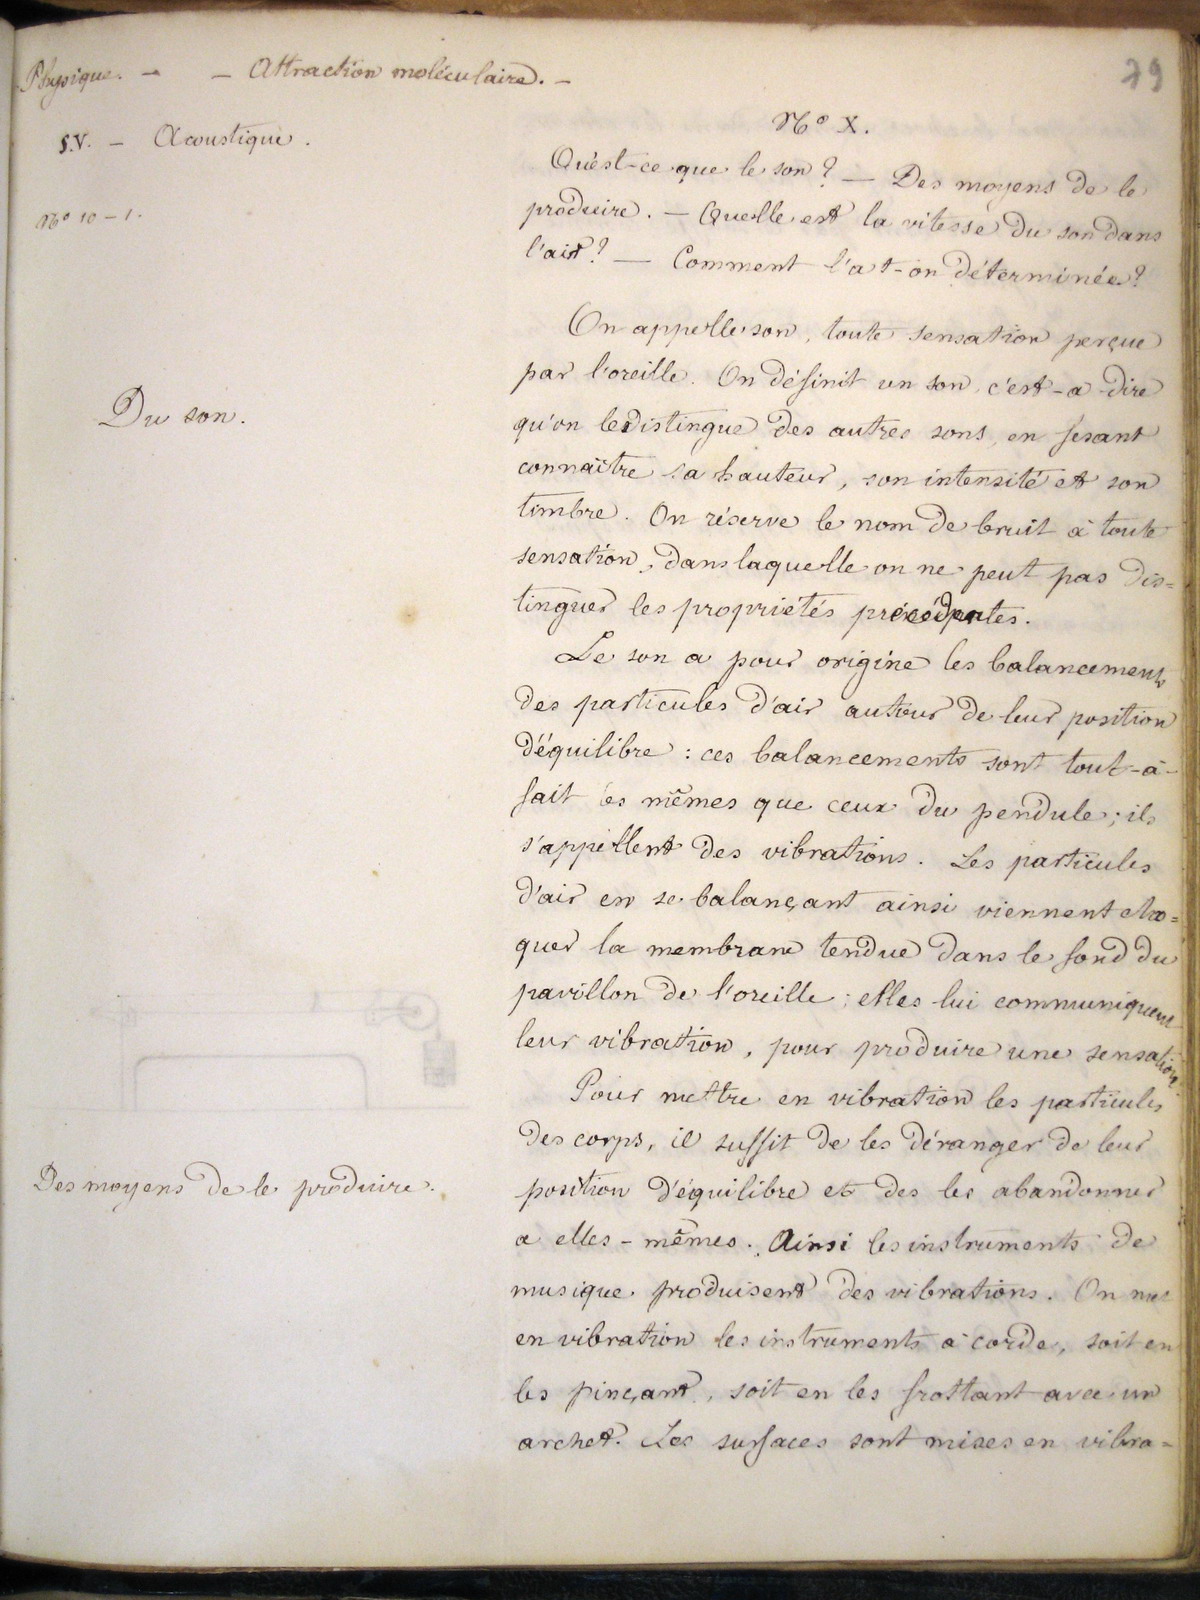 Physique. - - Attraction moléculaire. -
79
§.V. - Acoustique.
No 10-1.
No X.
Qu'est-ce que le son? - Des moyens de le
produire. - Quelle est la vitesse du son dans
l'air? - Comment l'a t-on déterminée?
On appelle son, toute sensation perçue
par l'oreille. On définit un son, c'est-a-dire
Du son.
qu'on le distingue des autres sons, en fesant
connaître sa hauteur, son intensité et son
timbre. On réserve le nom de bruit à toute
sensation, dans laquelle on ne peut pas dis=
tinguer les propriétés précédentes.
Le son a pour origine les balancements
des particules d'air autour de leur position
d'équilibre : ces balancements sont tout-à-
fait les mêmes que ceux du pendule; ils
s'appellent des vibrations. Les particules
d'air en se balançant ainsi viennent cho=
quer la membrane tendue dans le fond du
pavillon de l'oreille; elles lui communiquent
leur vibration, pour produire une sensation.
Pour mettre en vibration les particules
des corps, il suffit de les déranger de leur
Des moyens de le produire.
position d'équilibre et des les abandonner
a elles-mêmes. Ainsi les instruments de
musique produisent des vibrations. On met
en vibration les instruments à corde, soit en
les pinçant, soit en les frottant avec un
archet. Les surfaces sont mises en vibra=